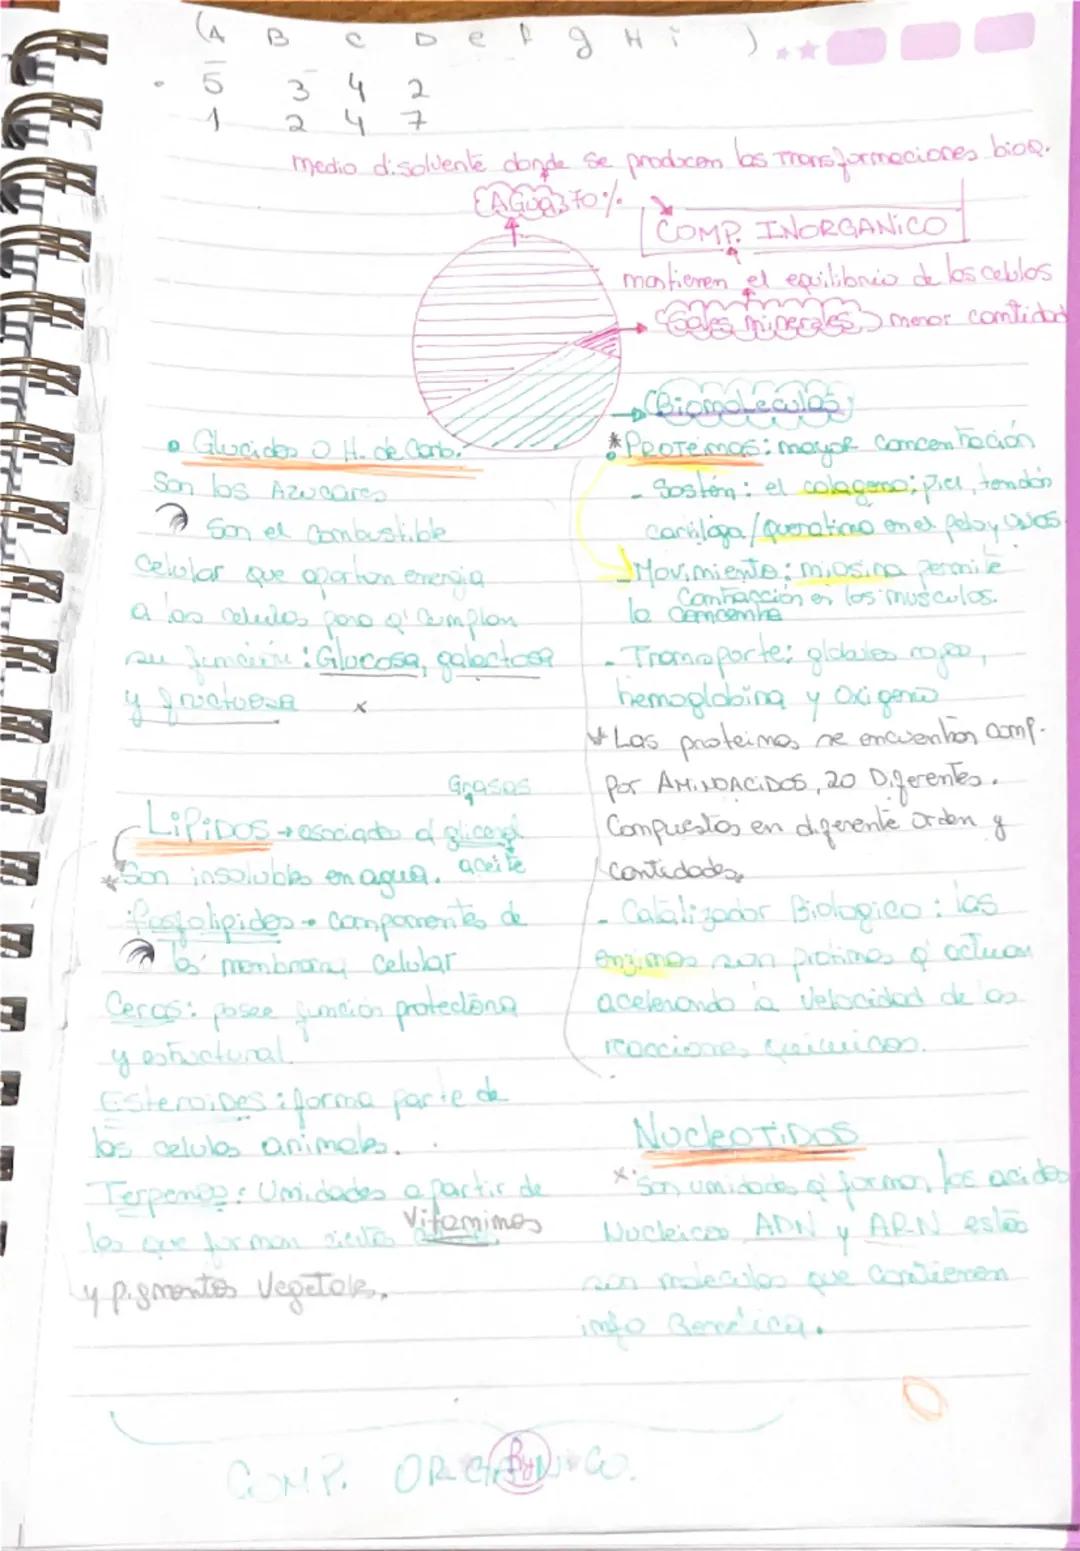 (A B C D e f g H i )
5 3 4 2
1 2 4 7
medio disolvente donde se producen las Transformaciones bioq.
AGUA 70%
COMP. INORGANICO
mantienen el equilibrio de las celulas
Sales minerales menor cantidad
Biomoleculas
• Glucidos O H. de Carb.
Son los Azucares
Son el Combustible
Celular que aportan energia
a las celulas para q' cumplan
su función: Glucosa, galactosa
y fructosa x
Grasas
LiPiDOS → asociado al glicerol
aceite
* Son insolubles en agua.
fosfolipidos → componentes de
la membrana celular
Ceras: posee función protectora
y estructural.
Esteroides: forma parte de
las celulas animales.
Terpenos: Unidades a partir de
las que forman ciertas Vitaminas
y pigmentos Vegetales.
* Proteinas: mayor concentración
- Sostén: el colageno; piel, tendón
cartílago/queratina en el pelo y uñas
- Movimiento: miosina permite
la contracción en los músculos.
- Transporte: globulos rojos,
hemoglobina y Oxigeno
* Las proteinas se encuentran comp.
Por AMINOACIDOS, 20 Diferentes.
Compuestos en diferente orden y
Cantidades.
- Catalizador Biologico: las
enzimas son protinas q' actuan
acelerando la velocidad de las
reacciones quimicas.
NucleoTiDOS
x Son unidades q' forman los acidos
Nucleicos ADN y ARN estas
son moleculas que Contienen
info Genética.
COMP. ORGANICO.